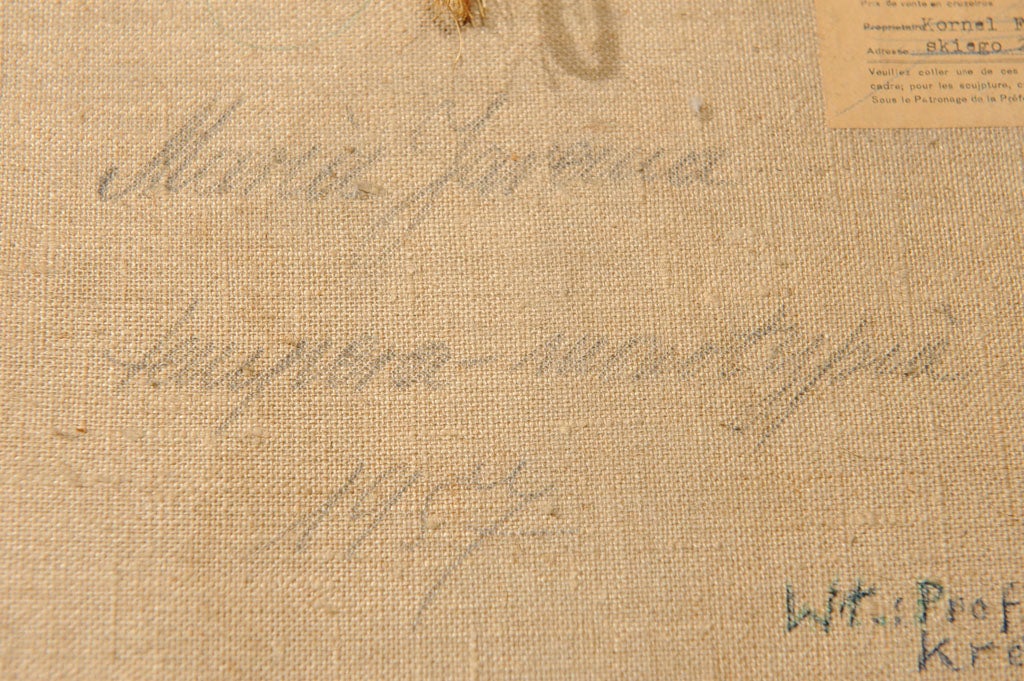 Prix de vente en cruzeiros
Propriétaire Kornel F
Adresse skiego
Veuillez coller une de ces
cadre; pour les sculpture, c
Sous le Patronage de la Préf
Maria Jarema
tempera - monotypia
1957
Wt.: Prof
Kre